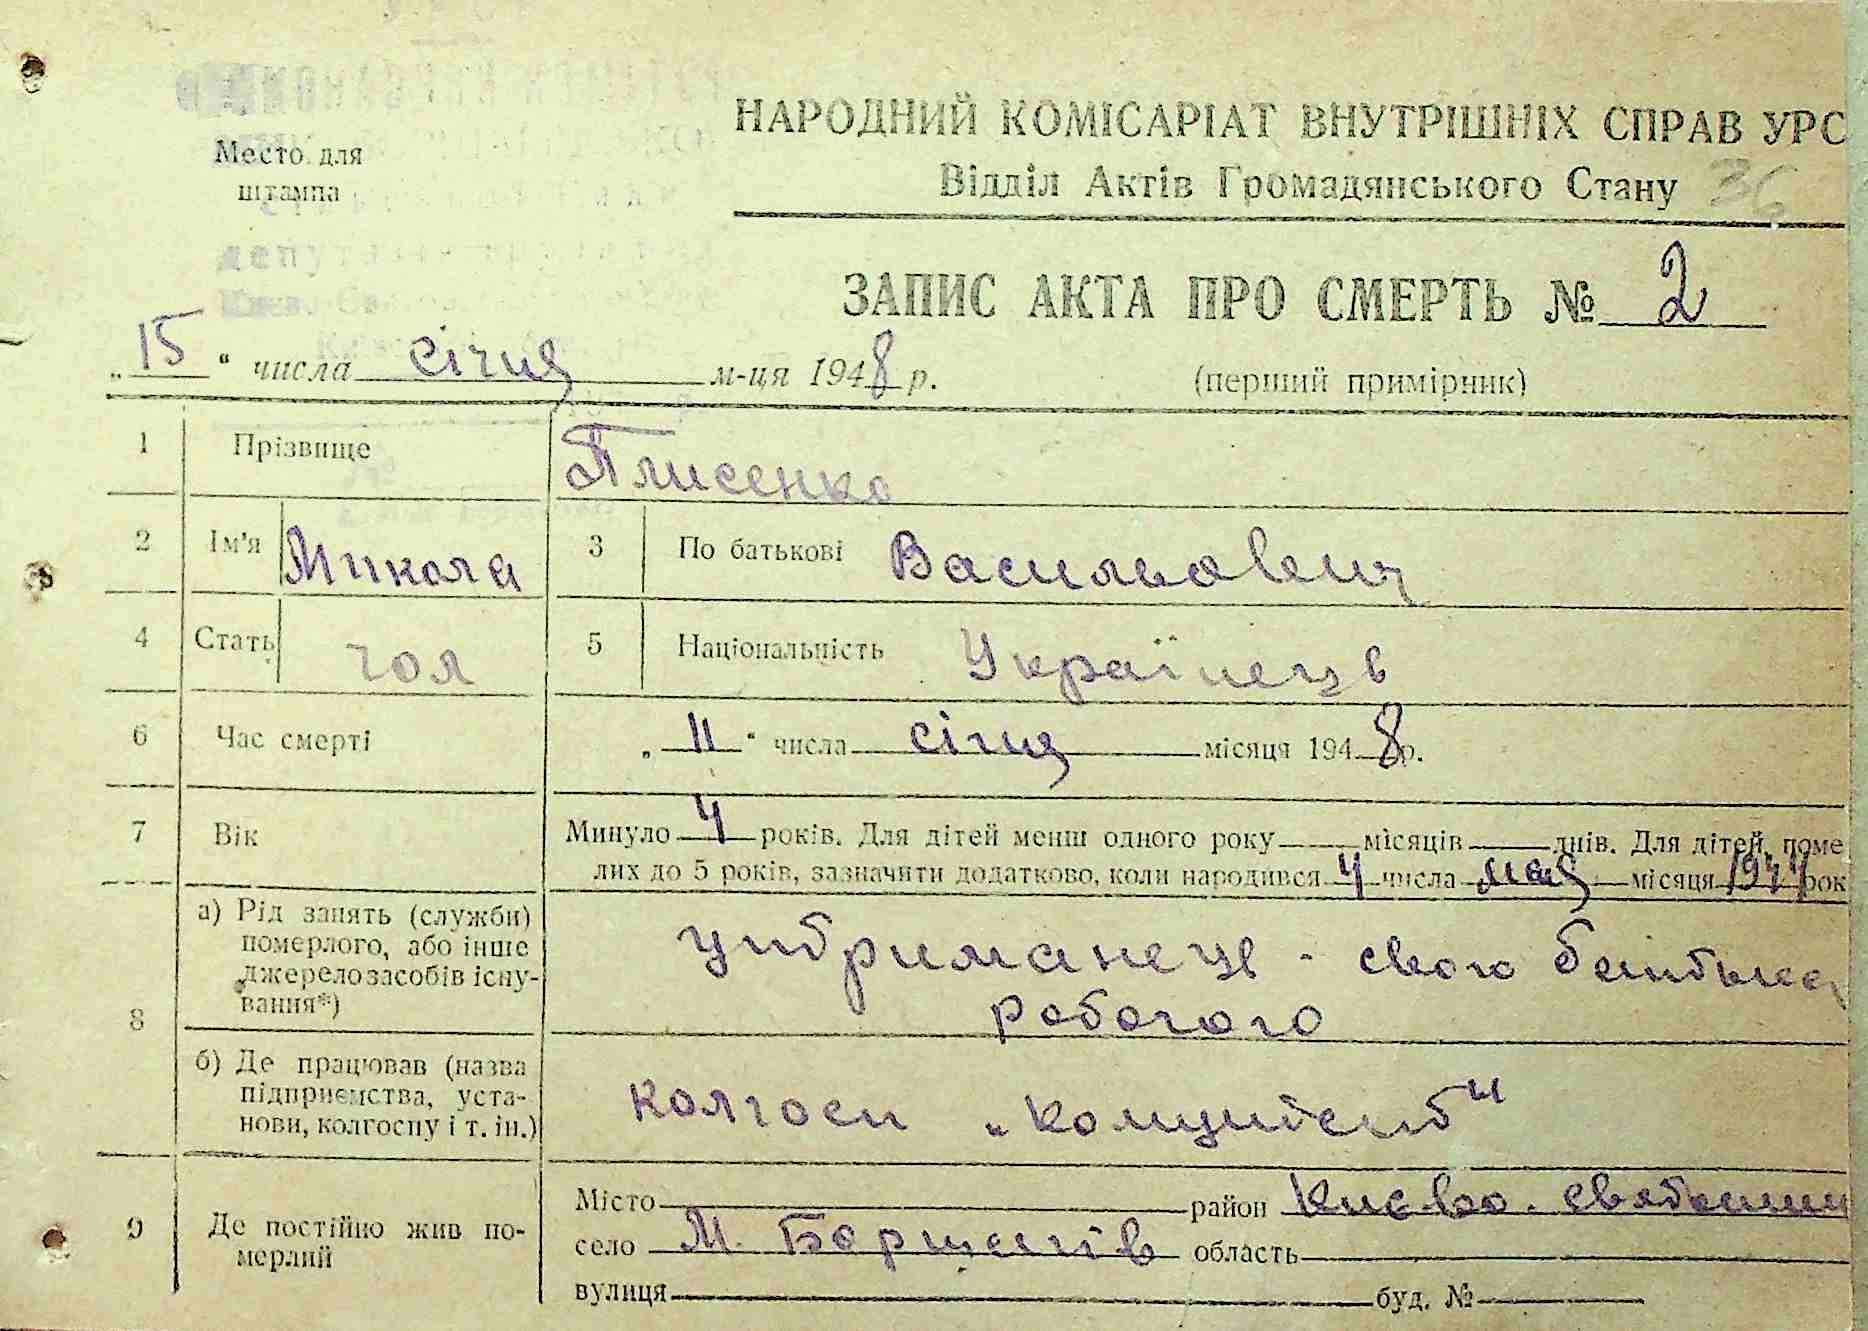 НАРОДНИЙ КОМІСАРІАТ ВНУТРІШНІХ СПРАВ УРС
Место для
штампа
Відділ Актів Громадянського Стану 36
ЗАПИС АКТА ПРО СМЕРТЬ № 2
„15“ числа січня м-ця 1948 р. (перший примірник)
1 Прізвище Плисенко
2 Ім'я Микола 3 По батькові Васильович
4 Стать чол 5 Національність Українець
6 Час смерті „11“ числа січня місяця 1948 р.
7 Вік Минуло 4 років. Для дітей менш одного року місяців днів. Для дітей, поме
лих до 5 років, зазначити додатково, коли народився 4 числа мая місяця 1944 рок
8 а) Рід занять (служби)
померлого, або інше
джерело засобів існу-
вання*)
утриманець - свого батька
робочого
б) Де працював (назва
підприємства, уста-
нови, колгоспу і т. ін.)
колгосп „Комунітент"
9 Де постійно жив по-
мерлий
Місто район Києво-Святошин
село М. Борщагів область
вулиця буд. №